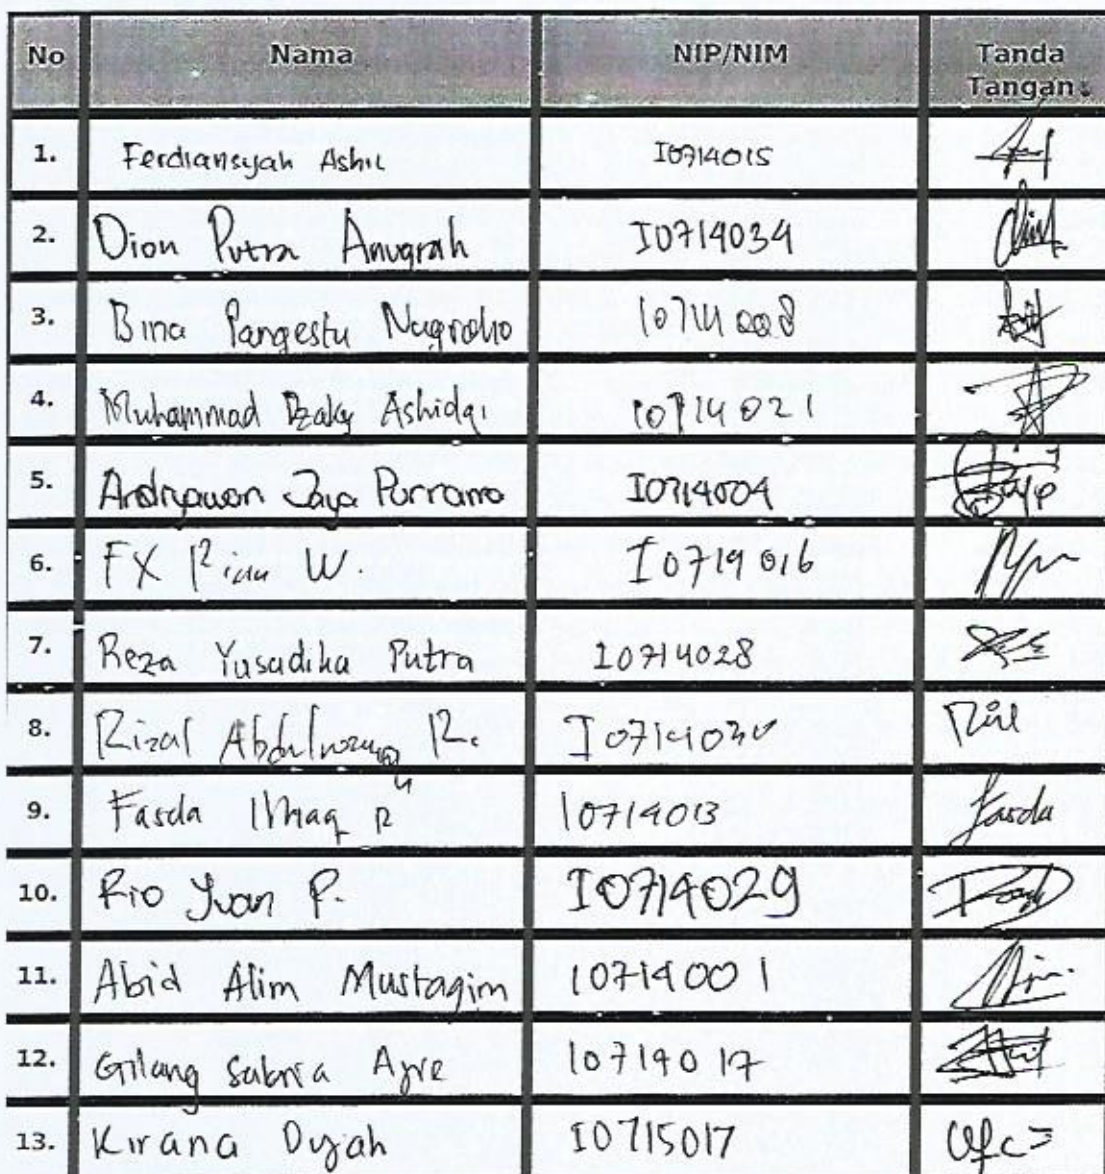 No Nama NIP/NIM Tanda
Tangan
1. Ferdiansyah Ashil I0714015
2. Dion Putra Anugrah I0714034
3. Bina Pangestu Nugroho I0714008
4. Muhammad Dzaky Ashidqi I0714021
5. Andryawan Jaya Purnama I0714004
6. FX Rian W. I0714016
7. Reza Yusadika Putra I0714028
8. Rizal R. I0714030
9. Farda Ilhaq R I0714013 Farda
10. Rio Yvan P. I0714029
11. Abid Alim Mustaqim I0714001
12. Gilang Sabria I0714017
13. Kirana Dyjah I0715017